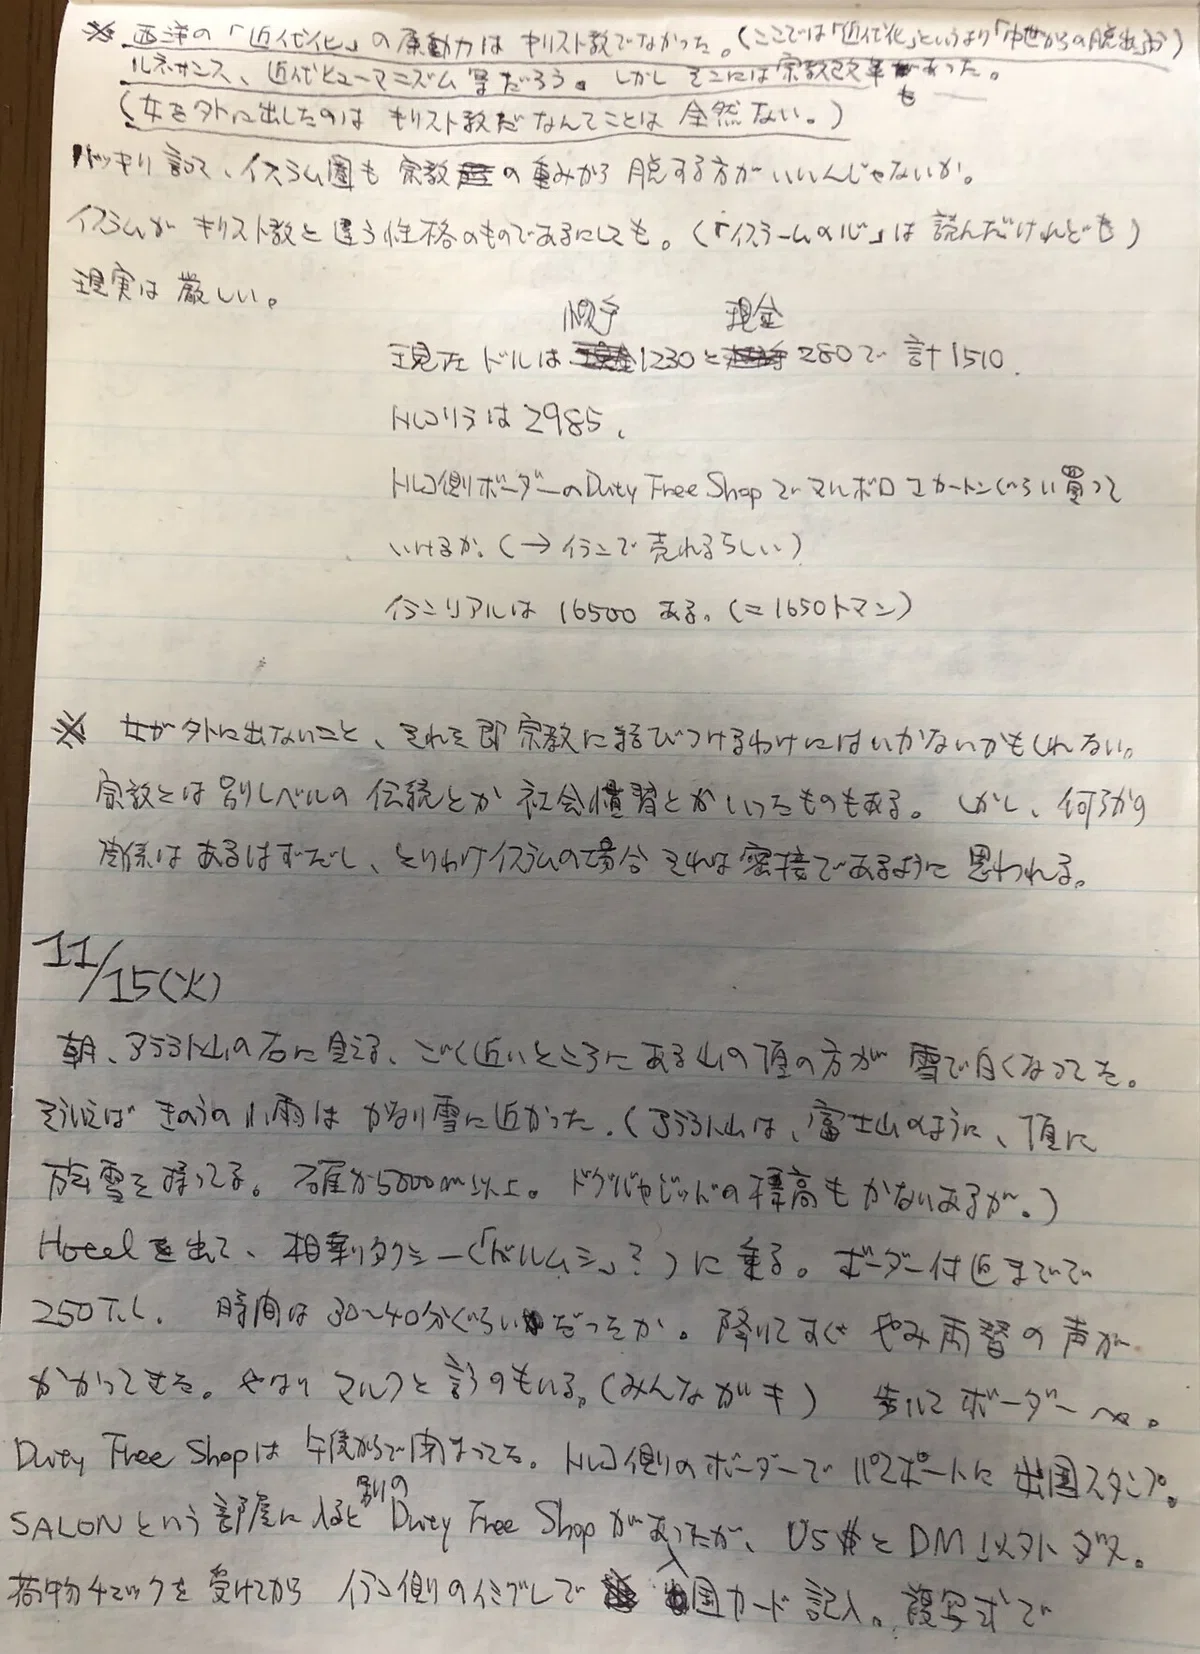 ※ 西洋の「近代化」の原動力はキリスト教でなかった。(ここでは「近代化」というより「中世からの脱出」か)
ルネサンス、近代ヒューマニズム等だろう。しかしそこには宗教改革もあった。
(女を外に出したのはキリスト教だなんてことは全然ない。)
ハッキリ言って、イスラム圏も宗教の重みから脱する方がいいんじゃないか。
イスラムがキリスト教と違う性格のものであるにしても。(「イスラームの心」は読んだけれども)
現実は厳しい。
現在ドルは 1230と 現金 280で 計1510.
トルコリラは2985.
トルコ側ボーダーのDuty Free Shopでマルボロ1カートンぐらい買って
いけるか。(→イランで売れるらしい)
イランリアルは 16500 ある。(=1650トマン)
※ 女が外に出ないこと、それを即宗教に結びつけるわけにはいかないかもしれない。
宗教とは別レベルの伝統とか社会慣習とかいったものもある。しかし、何らかの
関係はあるはずだし、とりわけイスラムの場合それは密接であるように思われる。
11/15(火)
朝、アララト山の右に見える、ごく近いところにある山の頂の方が雪で白くなってた。
そういえばきのうの小雨はかなり雪に近かった.(アララト山は、富士山のように、頂に
雪を残ってる。確か5000m以上。ドグバヤジッドの標高もかなりあるが。)
Hotelを出て、相乗りタクシー(「ドルムシ」?)に乗る。ボーダー付近までで
250T.L. 時間は30~40分ぐらいだったか。降りてすぐやみ両替の声が
かかってきた。やはりマルクと言うのもいる。(みんなガキ) 歩いてボーダーへ。
Duty Free Shopは午後からで閉まってる。トルコ側のボーダーでパスポートに出国スタンプ。
SALONという部屋に入ると別のDuty Free Shopがあったが、US$とDM以外ダメ。
荷物チェックを受けてからイラン側のイミグレで入国カード記入。複写式で